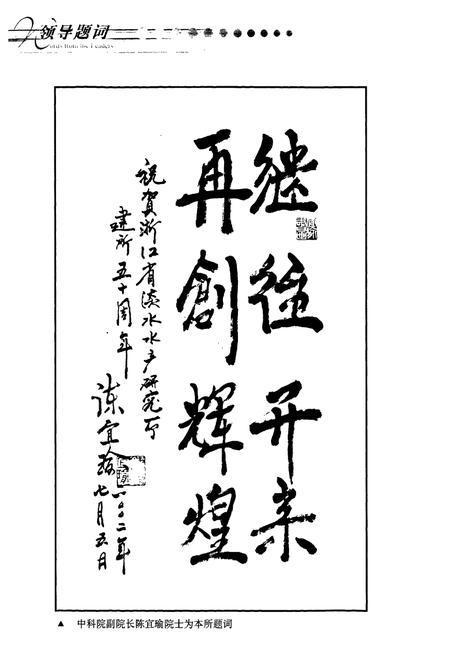 领导题词
Words from the Leaders
继往开来
再創辉煌
祝贺浙江省淡水水产研究所
建所五十周年
陈宜瑜
二〇〇二年
七月五日
▲ 中科院副院长陈宜瑜院士为本所题词